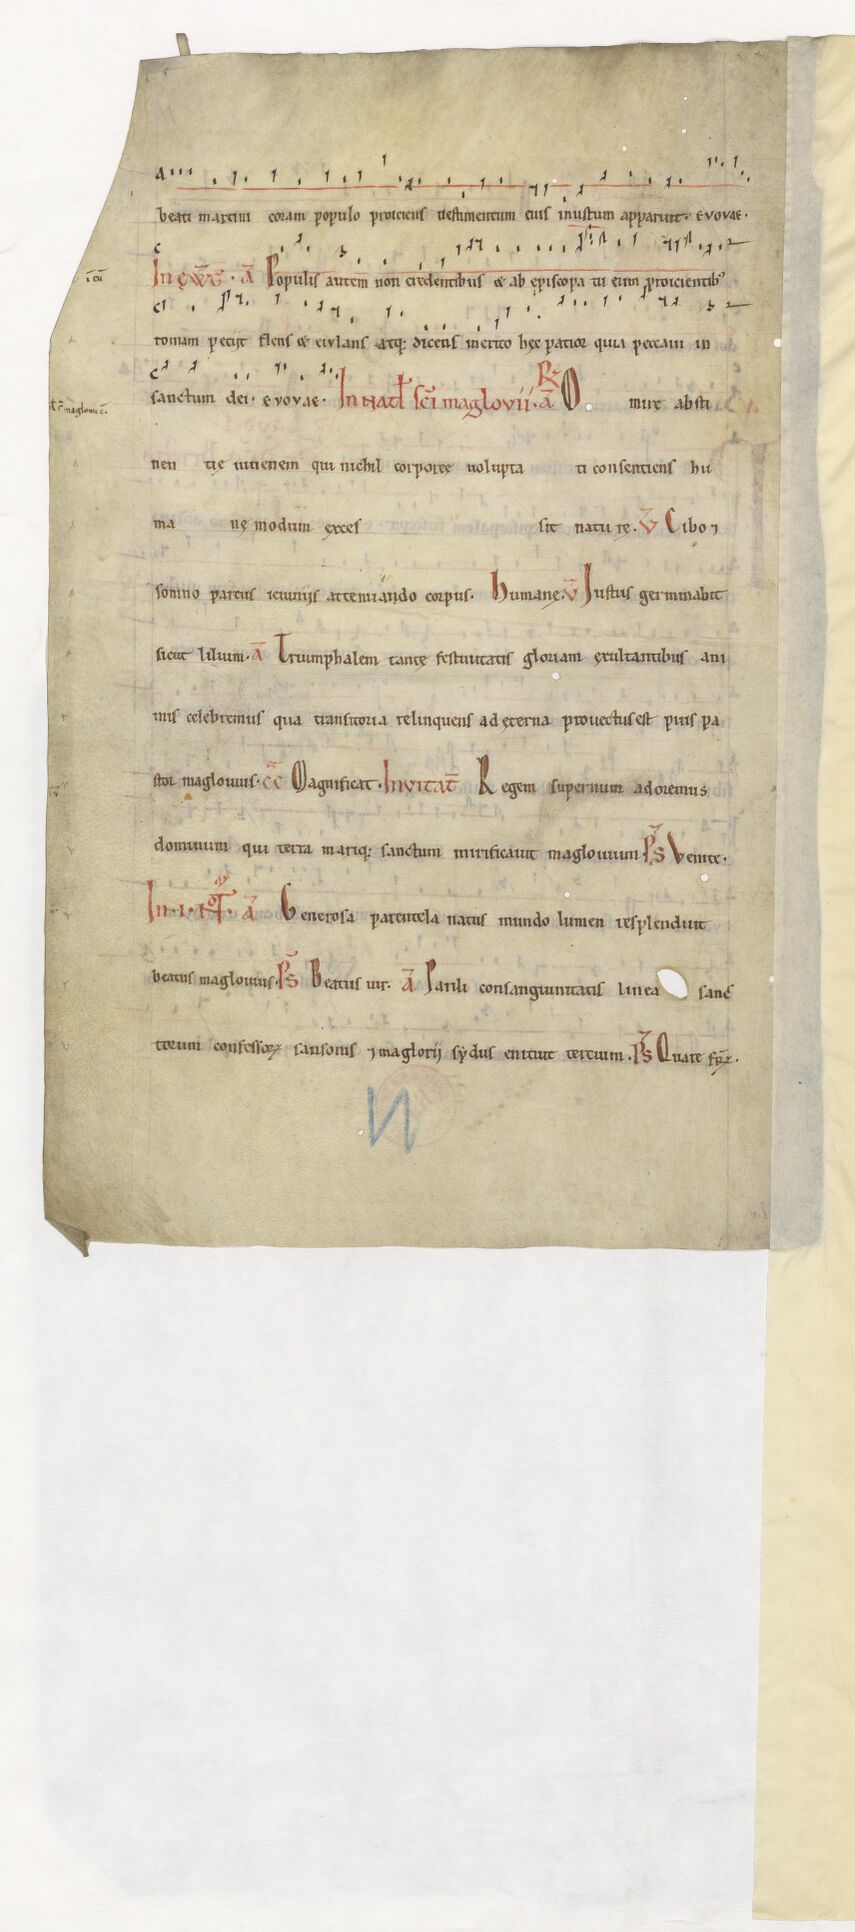 beati martini coram populo proiciens uestimentum eius inustum apparuit. evovae.
In ewḡ. ā Populis autem non credentibus & ab episcopa tu eum proicientib⁹
romam petijt flens & eiulans atq; dicens merito hęc patior quia peccaui in
sanctum dei. evovae. In natł sc̄i maglovii. ā R̄ O mire absti
nen tię iuuenem qui nichil corporeę uolupta ti consentiens hu
ma nę modum exces sit natu rę. v̄ Cibo ⁊
somno parcus ieiuniis attenuando corpus. humanę. v̄ Iustus germinabit
sicut lilium. ā Triumphalem tantę festiuitatis gloriam exultantibus ani
mis celebremus qua transitoria relinquens ad ęterna prouectus est pius pa
stor maglouius. c̄c Magnificat. Invitat̄ Regem supernum adoremus
dominum qui terra mariq; sanctum mirificauit maglouium. p̄s Venite.
In .i. ā Generosa parentela natus mundo lumen resplenduit
beatus maglouius. p̄s Beatus uir. ā Parili consanguinitatis linea sanc
torum confessoꝝ sansonis ⁊ maglorii sydus enituit tercium. p̄s Quare fr̄.
N